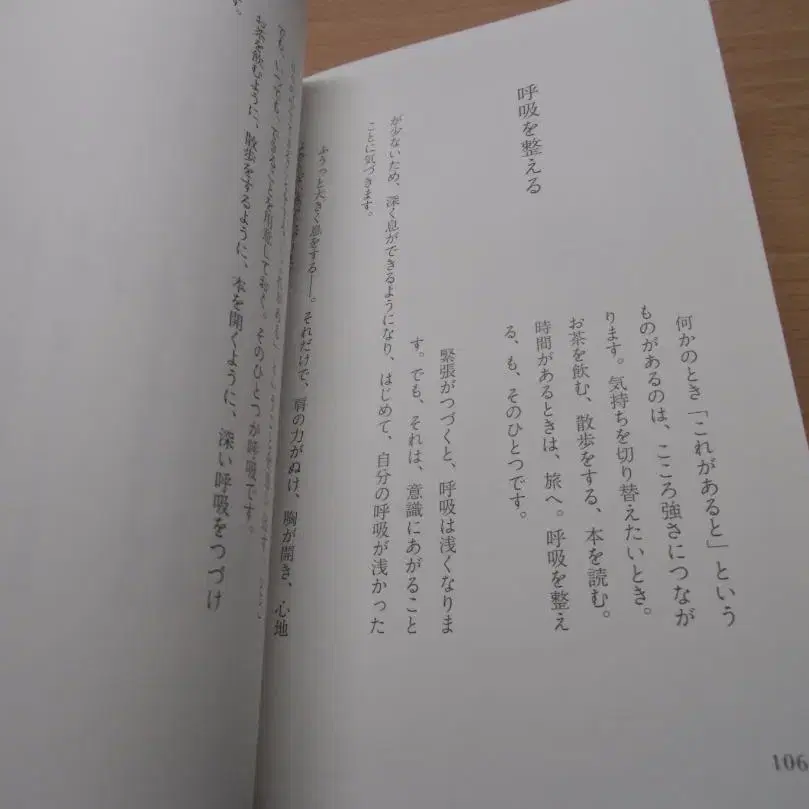 呼吸を整える
何かのとき「これがあると」という
ものがあるのは、こころ強さにつなが
ります。気持ちを切り替えたいとき。
お茶を飲む、散歩をする、本を読む。
時間があるときは、旅へ。呼吸を整え
る、も、そのひとつです。
緊張がつづくと、呼吸は浅くなりま
す。でも、それは、意識にあがること
が少ないため、深く息ができるようになり、はじめて、自分の呼吸が浅かった
ことに気づきます。
ふうっと大きく息をする―。それだけで、肩の力がぬけ、胸が開き、心地
106
でも、いつでも、できることを用意しておく。そのひとつが呼吸です。
お茶を飲むように、散歩をするように、本を開くように、深い呼吸をつづけ
す。